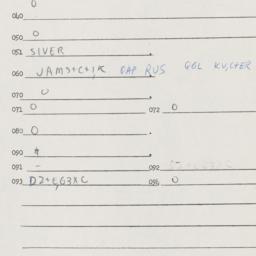 0
040
050 0
051 SIVER
060 JAMS+C+,K GAP RUS GGL KV,CHER
070 0
071 0 072 0
080 0
090 *
091 - 092 -
093 D2+E,G3XC 096 0